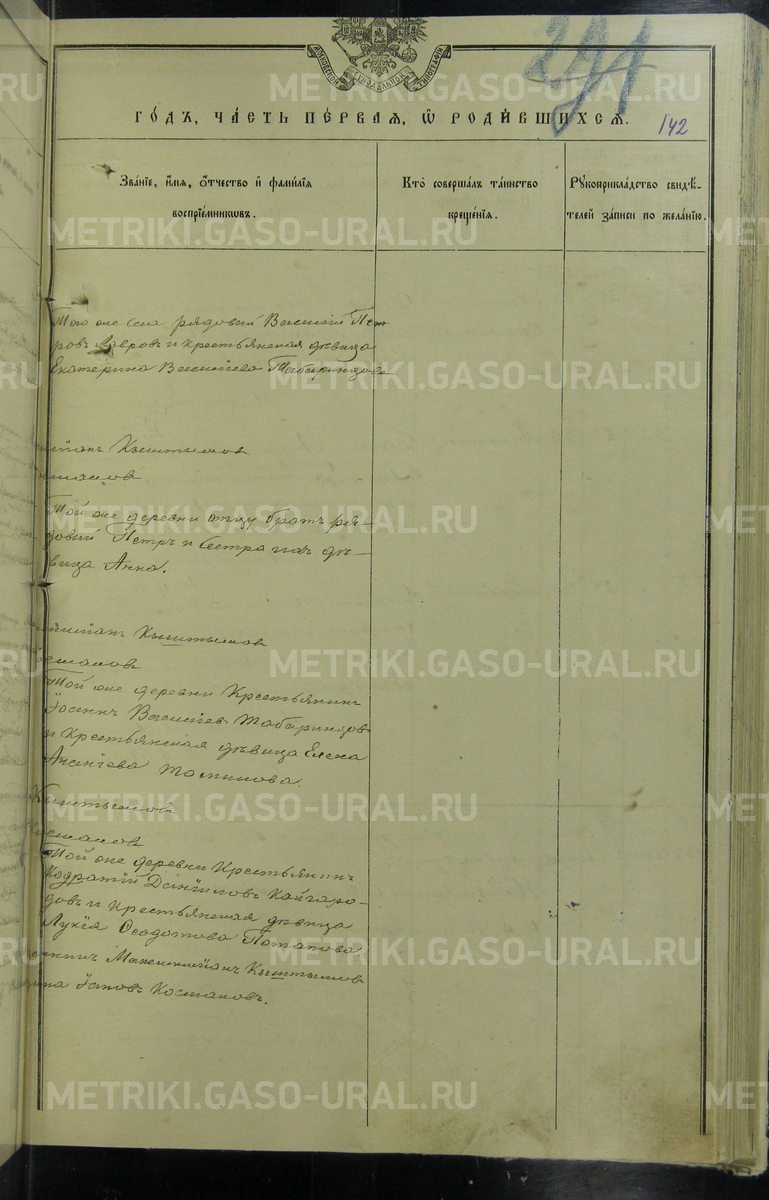 291
142
ГОДЪ, ЧАСТЬ ПЕРВАЯ, Ѡ РОДИВШИХСЯ.
Званіе, имя, отчество и фамилія
воспріемниковъ.
Кто совершалъ таинство
крещенія.
Рукоприкладство свидѣ-
телей записи по желанію.
Того же села рядовый Василій Пет
ровъ и крестьянская дѣвица
Екатерина Василіева Табаринцова
Кыштымовъ
Той же деревни отцу братъ ря-
довый Петръ и сестра дѣ-
вица Анна.
Кыштымовъ
Той же деревни Крестьянинъ
Іоаннъ Василіевъ Табаринцовъ
и Крестьянская дѣвица Елена
Томилова.
Кыштымовъ
Той же деревни Крестьянинъ
Кодратій Даніиловъ Кайгоро-
довъ и Крестьянская дѣвица
Лукія Ѳеодотова Потапова.
Максимиліанъ Кыштымовъ
METRIKI.GASO-URAL.RU